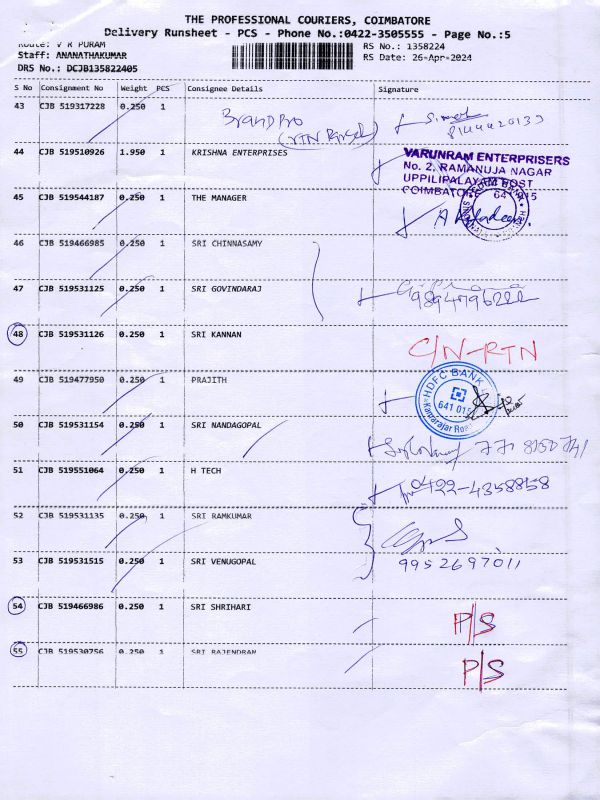 THE PROFESSIONAL COURIERS, COIMBATORE
Delivery Runsheet - PCS - Phone No.:0422-3505555 - Page No.:5
Route: V R PURAM
RS No.: 1358224
Staff: ANANATHAKUMAR
RS Date: 26-Apr-2024
DRS No.: DCJB135822405
S No Consignment No Weight PCS Consignee Details Signature
43 CJB 519317228 0.250 1 BrandPro
(RTN Parcel)
44 CJB 519510926 1.950 1 KRISHNA ENTERPRISES
VARUNRAM ENTERPRISERS
No. 2, RAMANUJA NAGAR
UPPILIPALAYAM POST
COIMBATORE 641 015
45 CJB 519544187 0.250 1 THE MANAGER
46 CJB 519466985 0.250 1 SRI CHINNASAMY
47 CJB 519531125 0.250 1 SRI GOVINDARAJ
48 CJB 519531126 0.250 1 SRI KANNAN C/N-RTN
49 CJB 519477950 0.250 1 PRAJITH
HDFC BANK
641 015
Kamarajar Road
50 CJB 519531154 0.250 1 SRI NANDAGOPAL
51 CJB 519551064 0.250 1 H TECH 0422-4358858
52 CJB 519531135 0.250 1 SRI RAMKUMAR
53 CJB 519531515 0.250 1 SRI VENUGOPAL 9952697011
54 CJB 519466986 0.250 1 SRI SHRIHARI P/S
55 CJB 519530756 0.250 1 SRI RAJENDRAN P/S